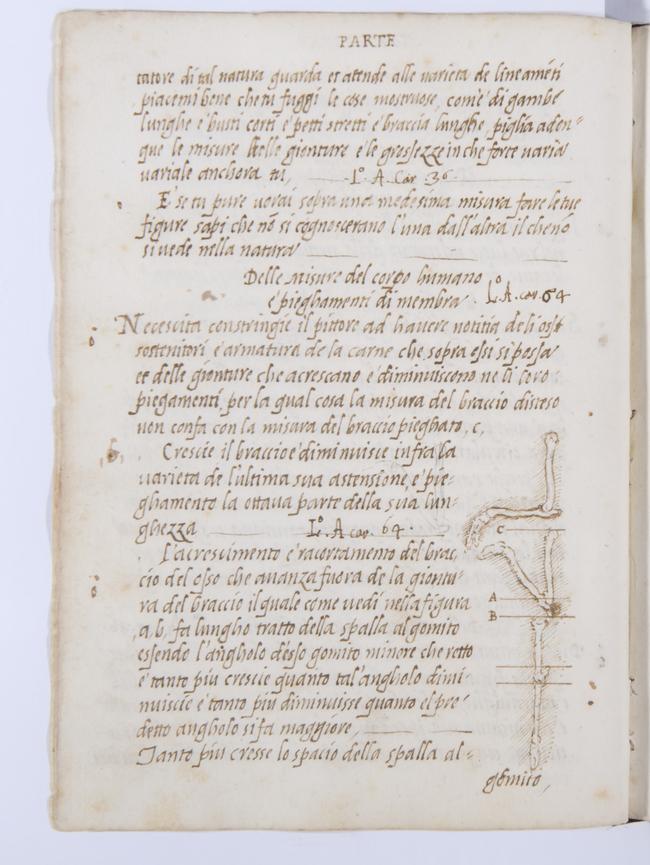 PARTE
tatore di tal natura guarda et atende alle varieta de lineaméti
piacemi bene che tu fuggi le cose mostruose, com'è di gambe
lunghe e busti corti e petti stretti e braccia lunghe, piglia aden=
que le misure delle gionture e le grossezze in che forte varia
variale anchora tu, L.º A. Car. 36.
E se tu pure vorai sopra una medesima misura fare le tue
figure sapi che nõ si cognoscerano l'una dall'altra il che nõ
si vede nella natura
Delle misure del corpo humano
e pieghamenti di membra. L.º A. car. 64
Necescita constringie il pittore ad havere notitia deli ossi
sostenitori e armatura de la carne che sopra essi si possa
et delle gionture che acrescano e diminuiscono ne li loro
piegamenti, per la qual cosa la misura del braccio disteso
non confa con la misura del braccio pieghato, c,
Crescie il braccio e diminuisce infra la
varieta de l'ultima sua astensione e pie=
ghamento la ottava parte della sua lun=
ghezza L.º A car. 64.
L'acrescimento e racortamento del brac
cio del osso che avanza fuora de la giontu
ra del braccio il quale come vedi nella figura
,a b, fa lungho tratto della spalla al gomito
essendo l'angholo d'esso gomito minore che retto
e tanto piu crescie quanto tal'angholo dimi
nuiscie e tanto piu diminuisse quanto el pre
detto angholo si fa maggiore,
Tanto piu cresse lo spacio della spalla al=
gomito,
C
A
B